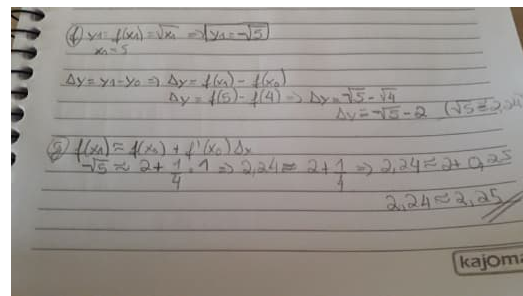 f) y1 = f(x1) = √x1 => y1 = √5
x1 = 5
Δy = y1 - y0 => Δy = f(x1) - f(x0)
Δy = f(5) - f(4) => Δy = √5 - √4
Δy = √5 - 2 (√5 ≅ 2,24)
g) f(x1) ≈ f(x0) + f'(x0) Δx
√5 ≈ 2 + 1/4 . 1 => 2,24 ≈ 2 + 1/4 => 2,24 ≈ 2 + 0,25
2,24 ≈ 2,25
kajoma